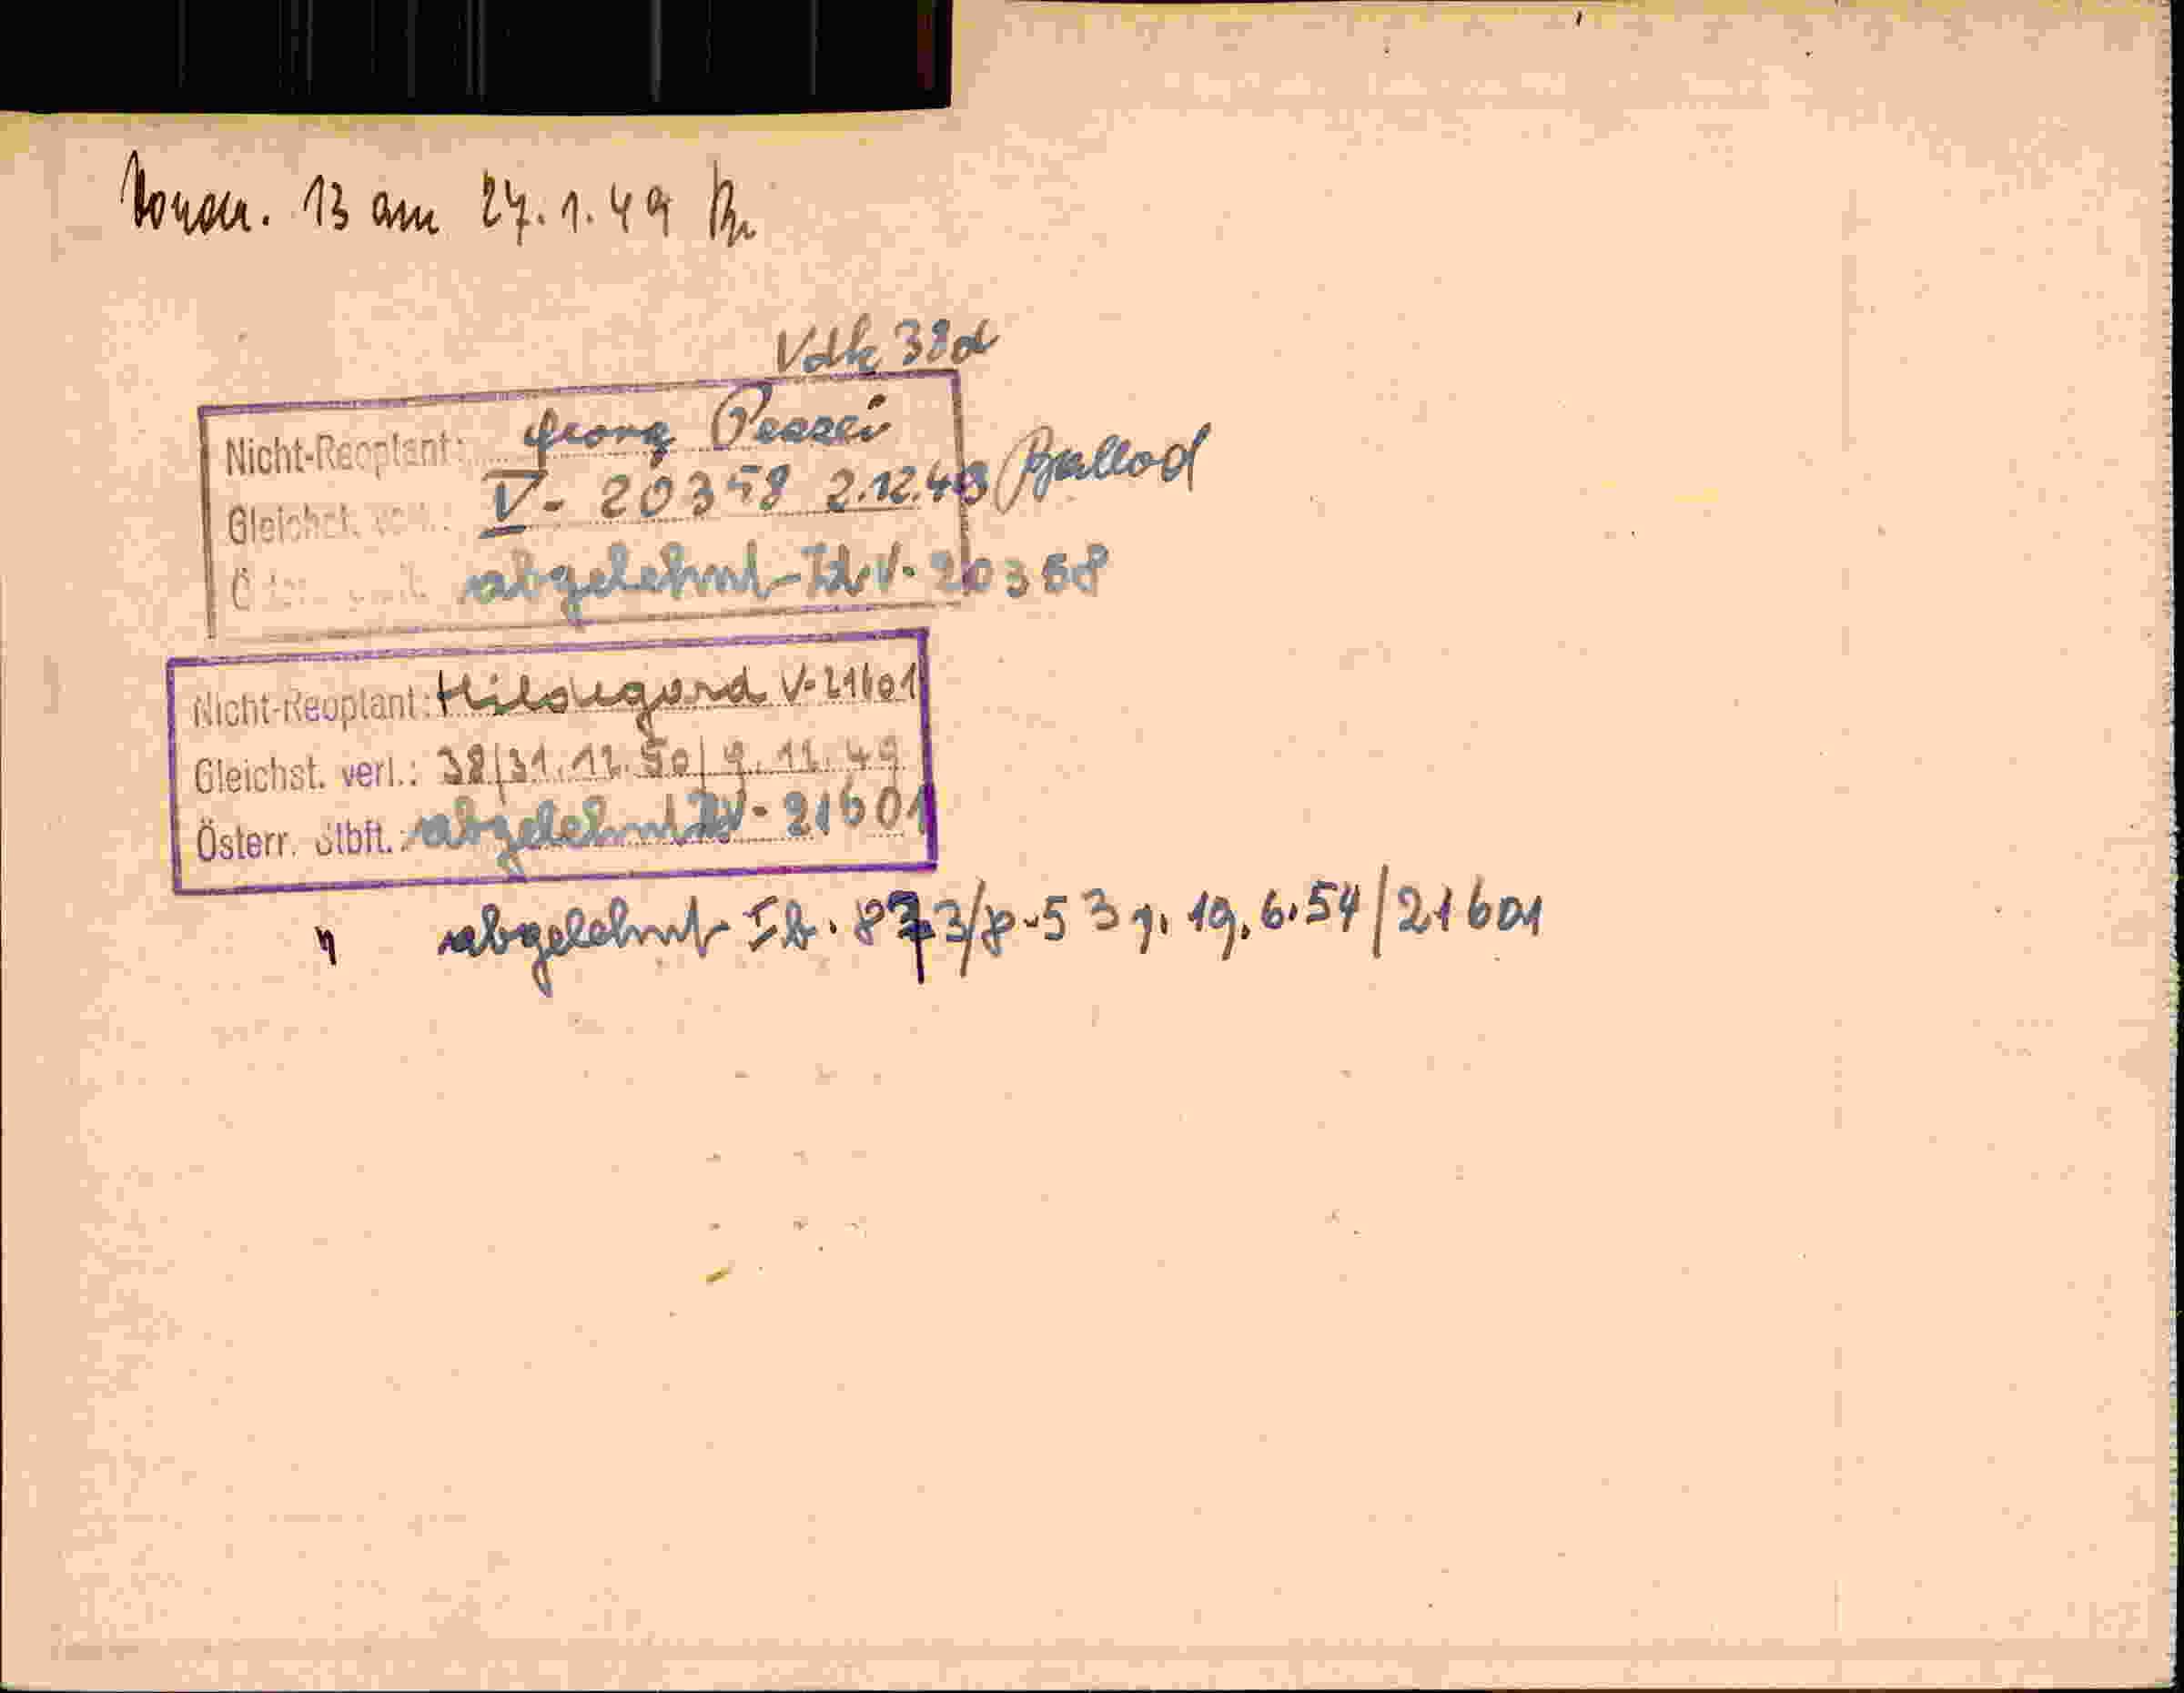 13 am 27.1.49
Vdk 38d
Nicht-Reoplant: Georg Pezzei
Gleichst. verl.: V- 20358 2.12.48 Ballod
abgelehnt - Ib V- 20358
Nicht-Reoplant: Hildegard V-21601
Gleichst. verl.: 38/31.12.50/9.12.49
Österr. Stbft.: abgelehnt V-21601
" abgelehnt Ib. 873/8-53 v. 19.6.54/21601